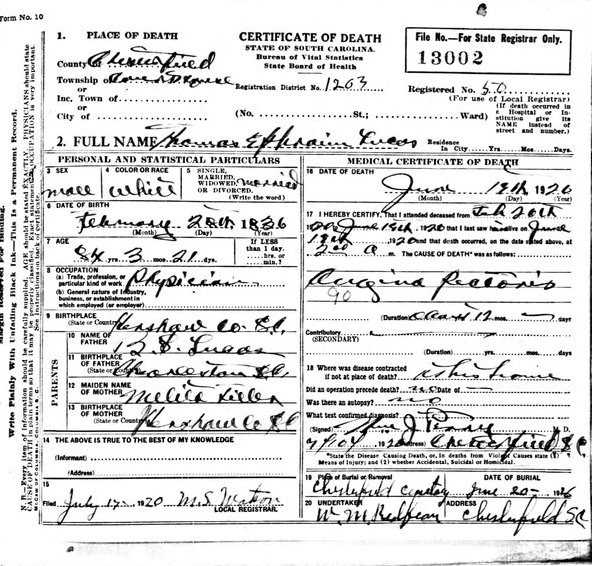 Form No. 10
1. PLACE OF DEATH
County of Chesterfield
Township of
or
Inc. Town of
or
City of
CERTIFICATE OF DEATH
STATE OF SOUTH CAROLINA.
Bureau of Vital Statistics
State Board of Health
Registration District No. 1263
(No. St.; Ward)
File No.—For State Registrar Only.
13002
Registered No. 50
(For use of Local Registrar)
(If death occurred in a Hospital or Institution give its NAME instead of street and number.)
2. FULL NAME Thomas Ephraim Lucas
Residence In City Yrs. Mos. Days.
PERSONAL AND STATISTICAL PARTICULARS
3 SEX
male
4 COLOR OR RACE
white
5 SINGLE, MARRIED, WIDOWED, OR DIVORCED.
(Write the word)
married
6 DATE OF BIRTH
February 28th 1836
(Month) (Day) (Year)
7 AGE
84 yrs. 3 mos. 21 ds.
If LESS than 1 day.
hrs. or min.?
8 OCCUPATION
(a) Trade, profession, or particular kind of work
Physician
(b) General nature of Industry, business, or establishment in which employed (or employer)
9 BIRTHPLACE
(State or Country)
Kershaw Co S.C.
PARENTS
10 NAME OF FATHER
Lucas
11 BIRTHPLACE OF FATHER
(State or Country)
Charleston S.C.
12 MAIDEN NAME OF MOTHER
13 BIRTHPLACE OF MOTHER
(State or Country)
Kershaw Co S.C
14 THE ABOVE IS TRUE TO THE BEST OF MY KNOWLEDGE
(Informant)
(Address)
15
Filed July 17 1920 M.S. Watson
LOCAL REGISTRAR.
MEDICAL CERTIFICATE OF DEATH
16 DATE OF DEATH
June 19th 1920
(Month) (Day) (Year)
17 I HEREBY CERTIFY, That I attended deceased from Feb 20th
1920 that I last saw him alive on June
19th 1920 and that death occurred, on the date stated above, at
2:00 a m. The CAUSE OF DEATH* was as follows:
Angina Pectoris
90
(Duration) yrs. 12 mos. days
Contributory
(SECONDARY)
(Duration) yrs. mos. days
18 Where was disease contracted
if not at place of death? at his home
Did an operation precede death? no Date of
Was there an autopsy? no
What test confirmed diagnosis?
(Signed) Wm J. Perry M. D.
1920 Chesterfield S.C
*State the Disease Causing Death, or, in deaths from Violent Causes state (1) Means of Injury; and (2) whether Accidental, Suicidal or Homicidal.
19 Place of Burial or Removal
Chesterfield Cemetery
DATE OF BURIAL
June 20 1920
20 UNDERTAKER
W. M. Redfearn
ADDRESS
Chesterfield SC
Write Plainly With Unfading Black Ink—This Is a Permanent Record.
N. B.—Every item of information should be carefully supplied. AGE should be stated EXACTLY. PHYSICIANS should state
CAUSE OF DEATH in plain terms so that it may be properly classified. Exact statement of OCCUPATION is very important.
See instructions on back of certificate